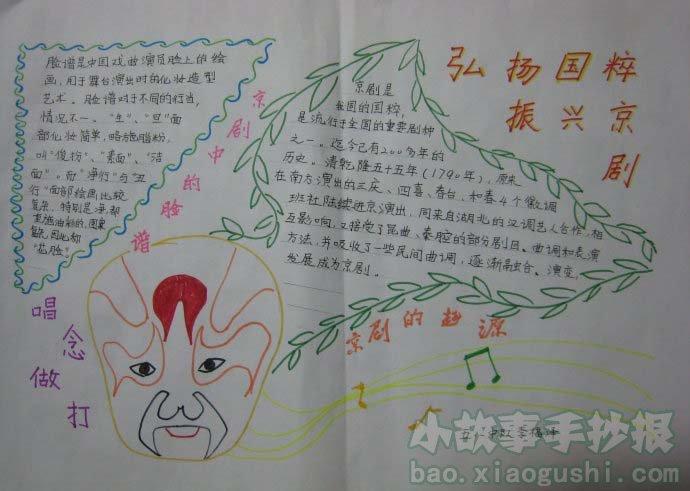 弘扬国粹
振兴京剧
脸谱是中国戏曲演员脸上的绘
画，用于舞台演出时的化妆造型
艺术。脸谱对于不同的行当，
情况不一。"生"、"旦"面
部化妆简单，略施脂粉，
叫"俊扮"、"素面"、"洁
面"。而"净行"与"丑
行"面部绘画比较
复杂，特别是净，都
是施油彩的，图案
复杂，因此称
"花脸"。
京剧中的脸谱
京剧是
我国的国粹，
是流行于全国的重要剧种
之一。迄今已有200多年的
历史。清乾隆五十五年（1790年），原来
在南方演出的三庆、四喜、春台，和春4个徽调
班社陆续进京演出，同来自湖北的汉调艺人合作，相
互影响，又接受了昆曲、秦腔的部分剧目、曲调和表演
方法，并吸收了一些民间曲调，逐渐融合、演变，
发展成为京剧。
京剧的起源
唱
念
做
打
小故事手抄报
bao.xiaogushi.com